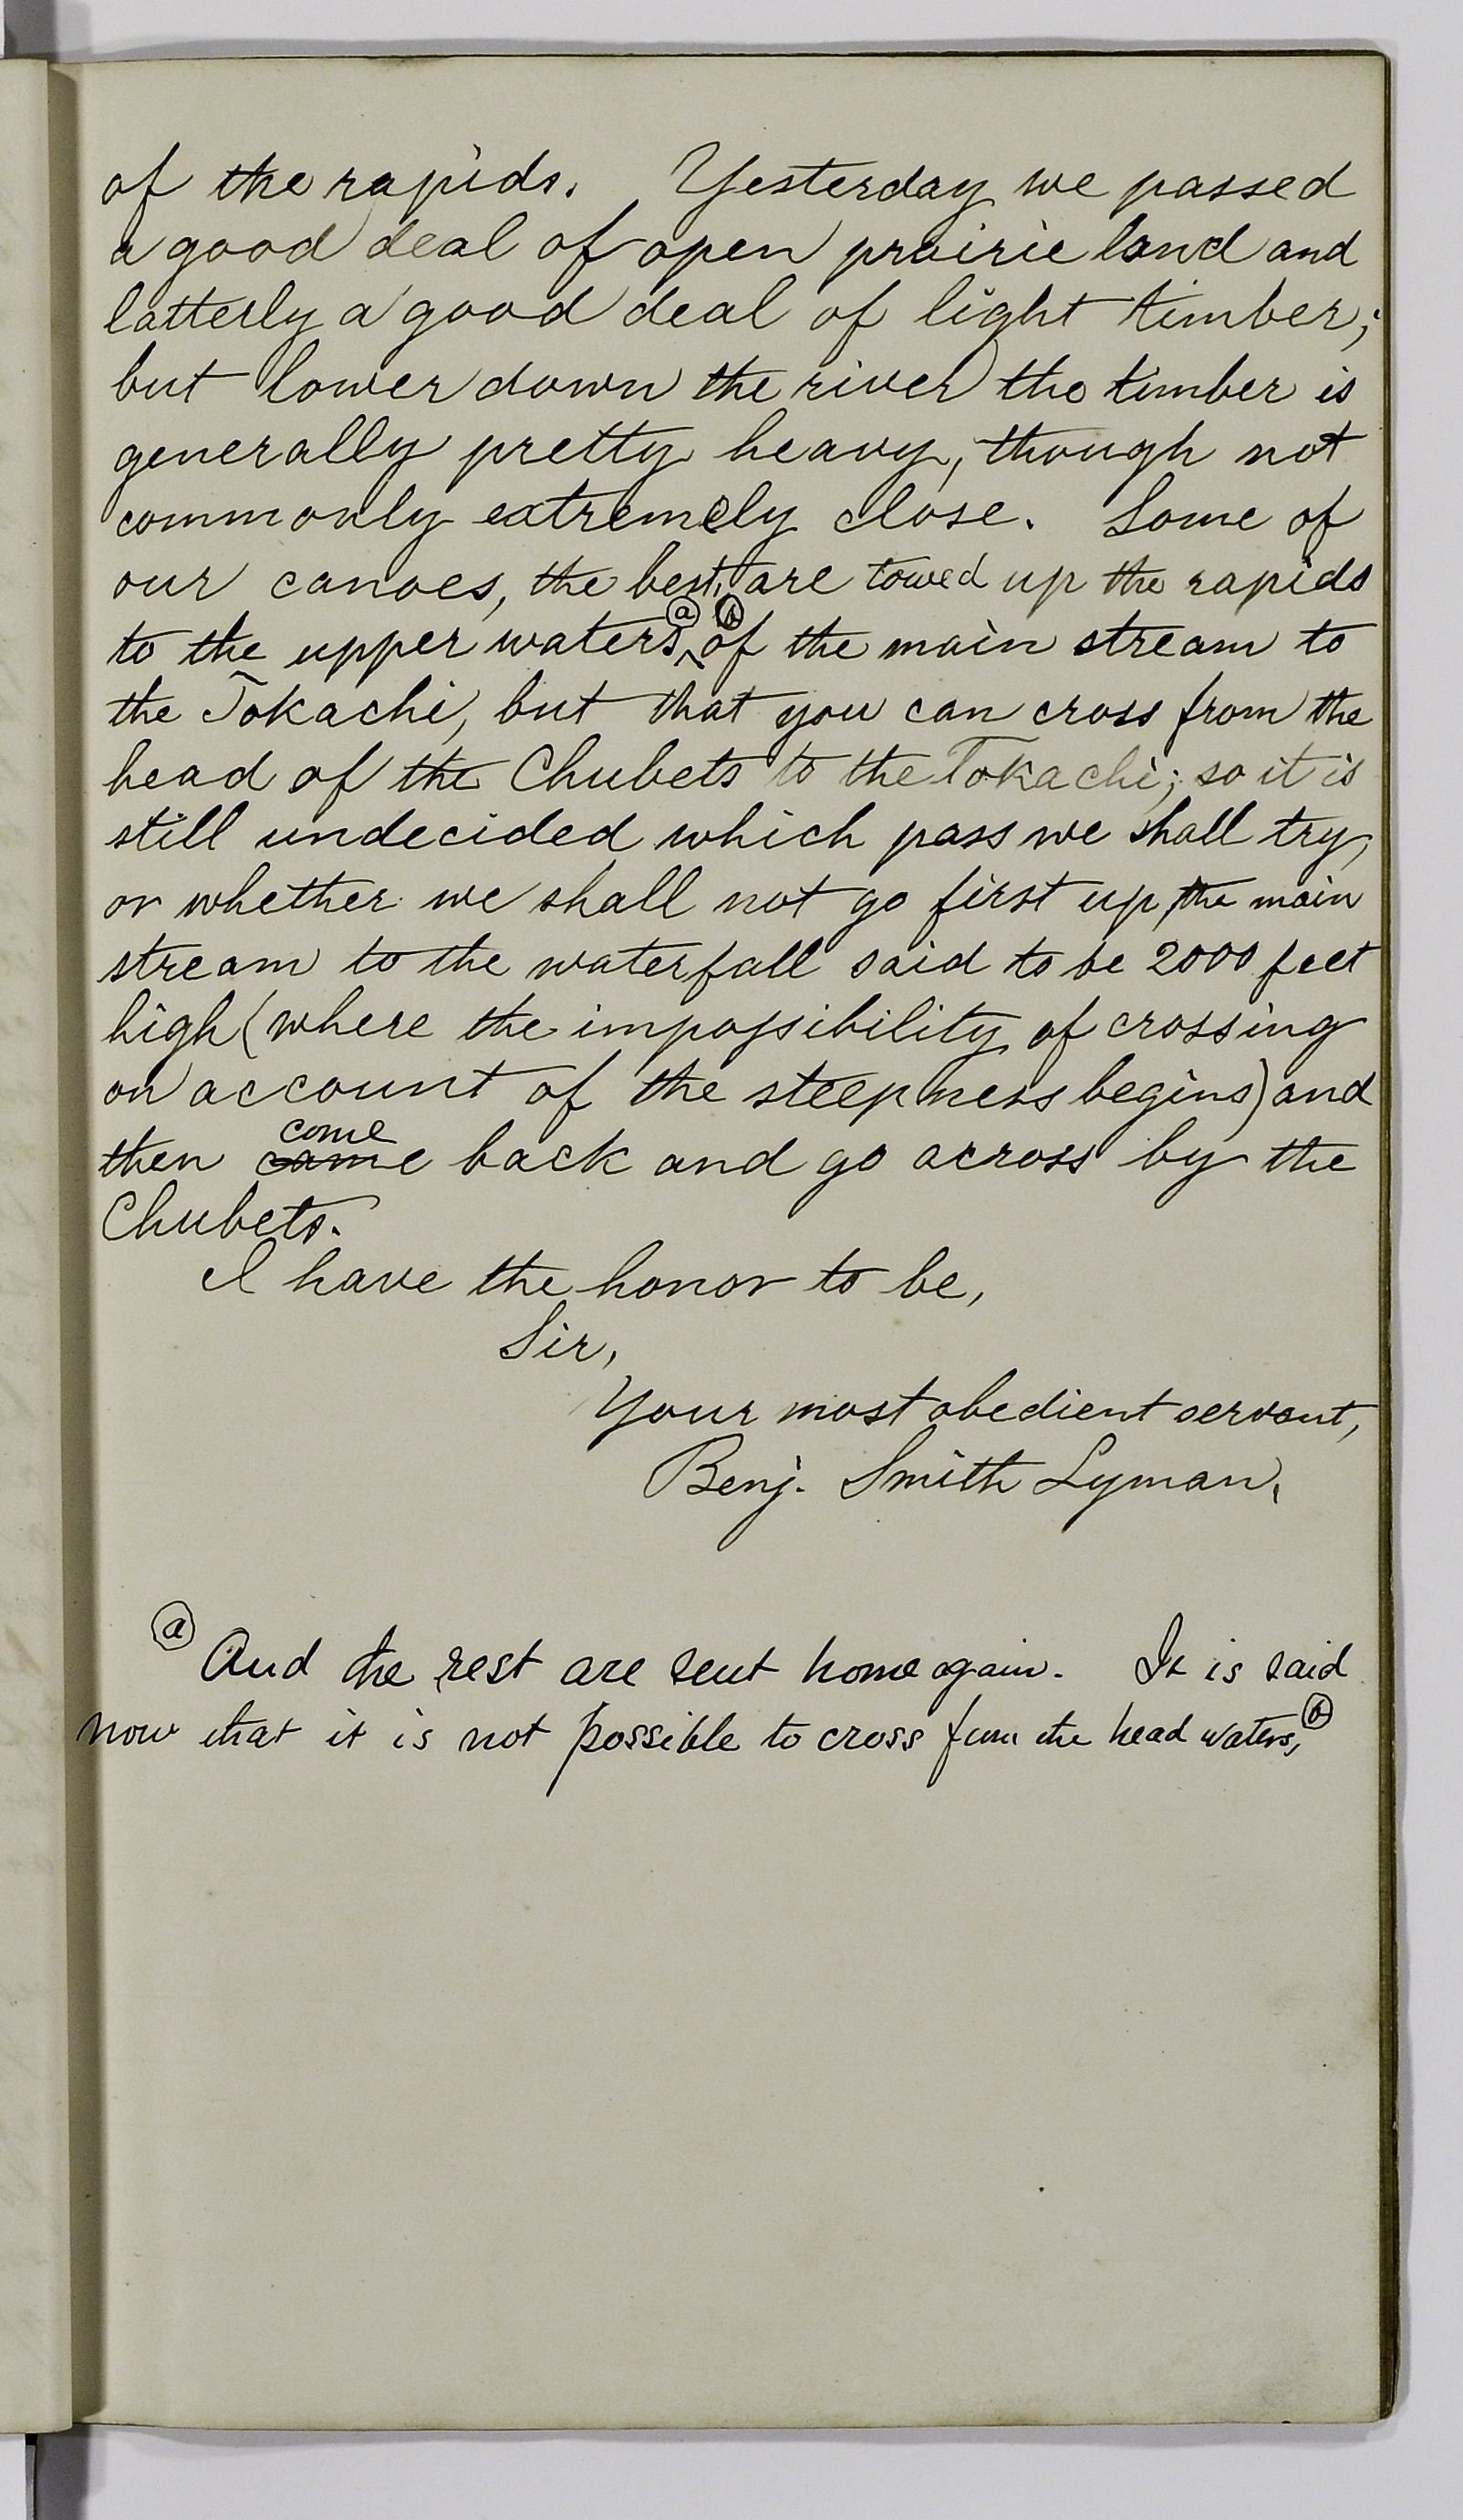 of the rapids. Yesterday we passed
a good deal of open prairie land and
latterly a good deal of light timber;
but lower down the river the timber is
generally pretty heavy, though not
commonly extremely close. Some of
our canoes, the best, are towed up the rapids
to the upper waters ⓐ ⓑ of the main stream to
the Tokachi, but that you can cross from the
head of the Chubets to the Tokachi; so it is
still undecided which pass we shall try,
or whether we shall not go first up the main
stream to the waterfall said to be 2000 feet
high (where the impossibility of crossing
on account of the steepness begins) and
come
then came back and go across by the
Chubets.
I have the honor to be,
Sir,
Your most obedient servant,
Benj. Smith Lyman.
ⓐ And the rest are sent home again. It is said
now that it is not possible to cross from the head waters, ⓑ